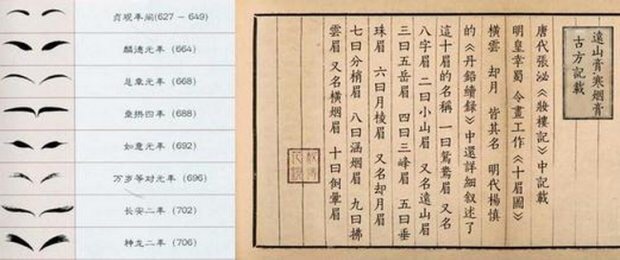 贞观年间(627 - 649)
麟德元年 (664)
总章元年 (668)
垂拱四年 (688)
如意元年 (692)
万岁登封元年 (696)
长安二年 (702)
神龙二年 (706)
遠山膏寒烟膏
古方記載
唐代張泌《妝樓記》中記載
明皇幸蜀 令畫工作《十眉圖》
橫雲 却月 皆其名 明代楊慎
的《丹鉛續錄》中還詳細叙述了
這十眉的名稱 一曰鴛鴦眉 又名
八字眉 二曰小山眉 又名遠山眉
三曰五岳眉 四曰三峰眉 五曰垂
珠眉 六曰月棱眉 又名却月眉
七曰分梢眉 八曰涵烟眉 九曰拂
雲眉 又名橫烟眉 十曰倒暈眉